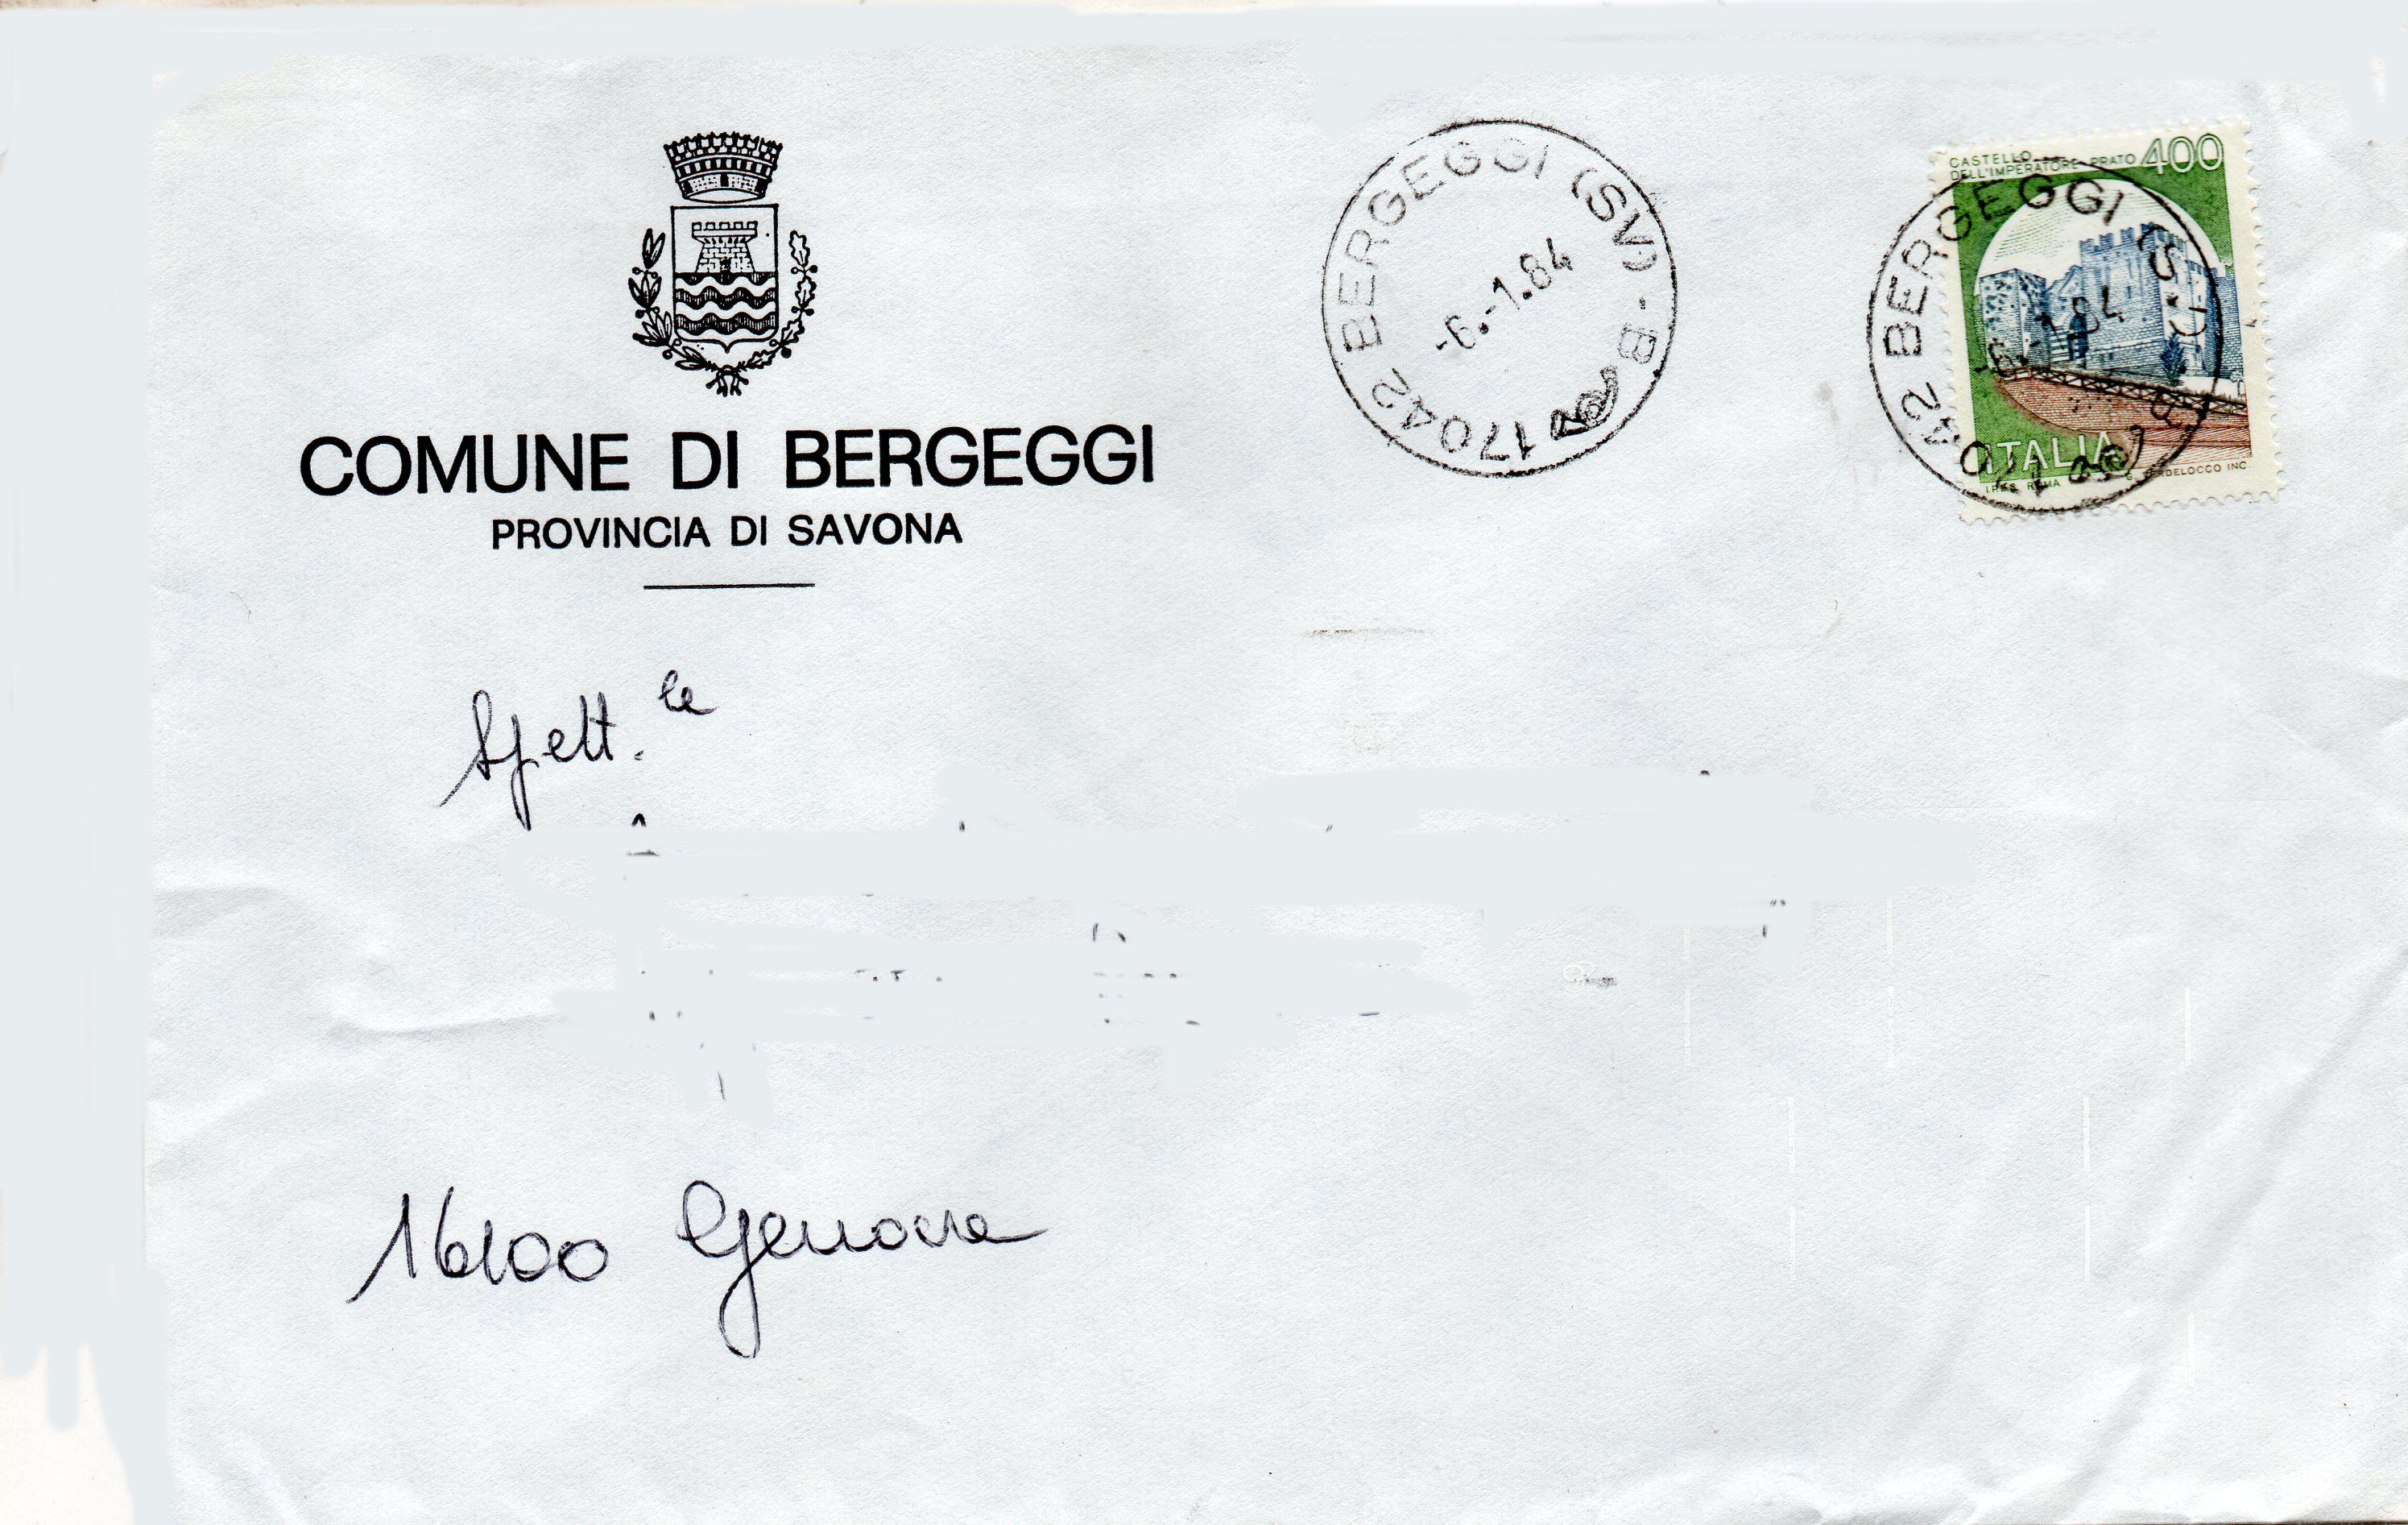 COMUNE DI BERGEGGI
PROVINCIA DI SAVONA
17042 BERGEGGI (SV) - B
-6.-1.84
CASTELLO
DELL'IMPERATORE PRATO 400
17042 BERGEGGI (SV)
84
ITALIA
I.P.Z.S. ROMA
VERDELOCCO INC
Spett.le
16100 Genova